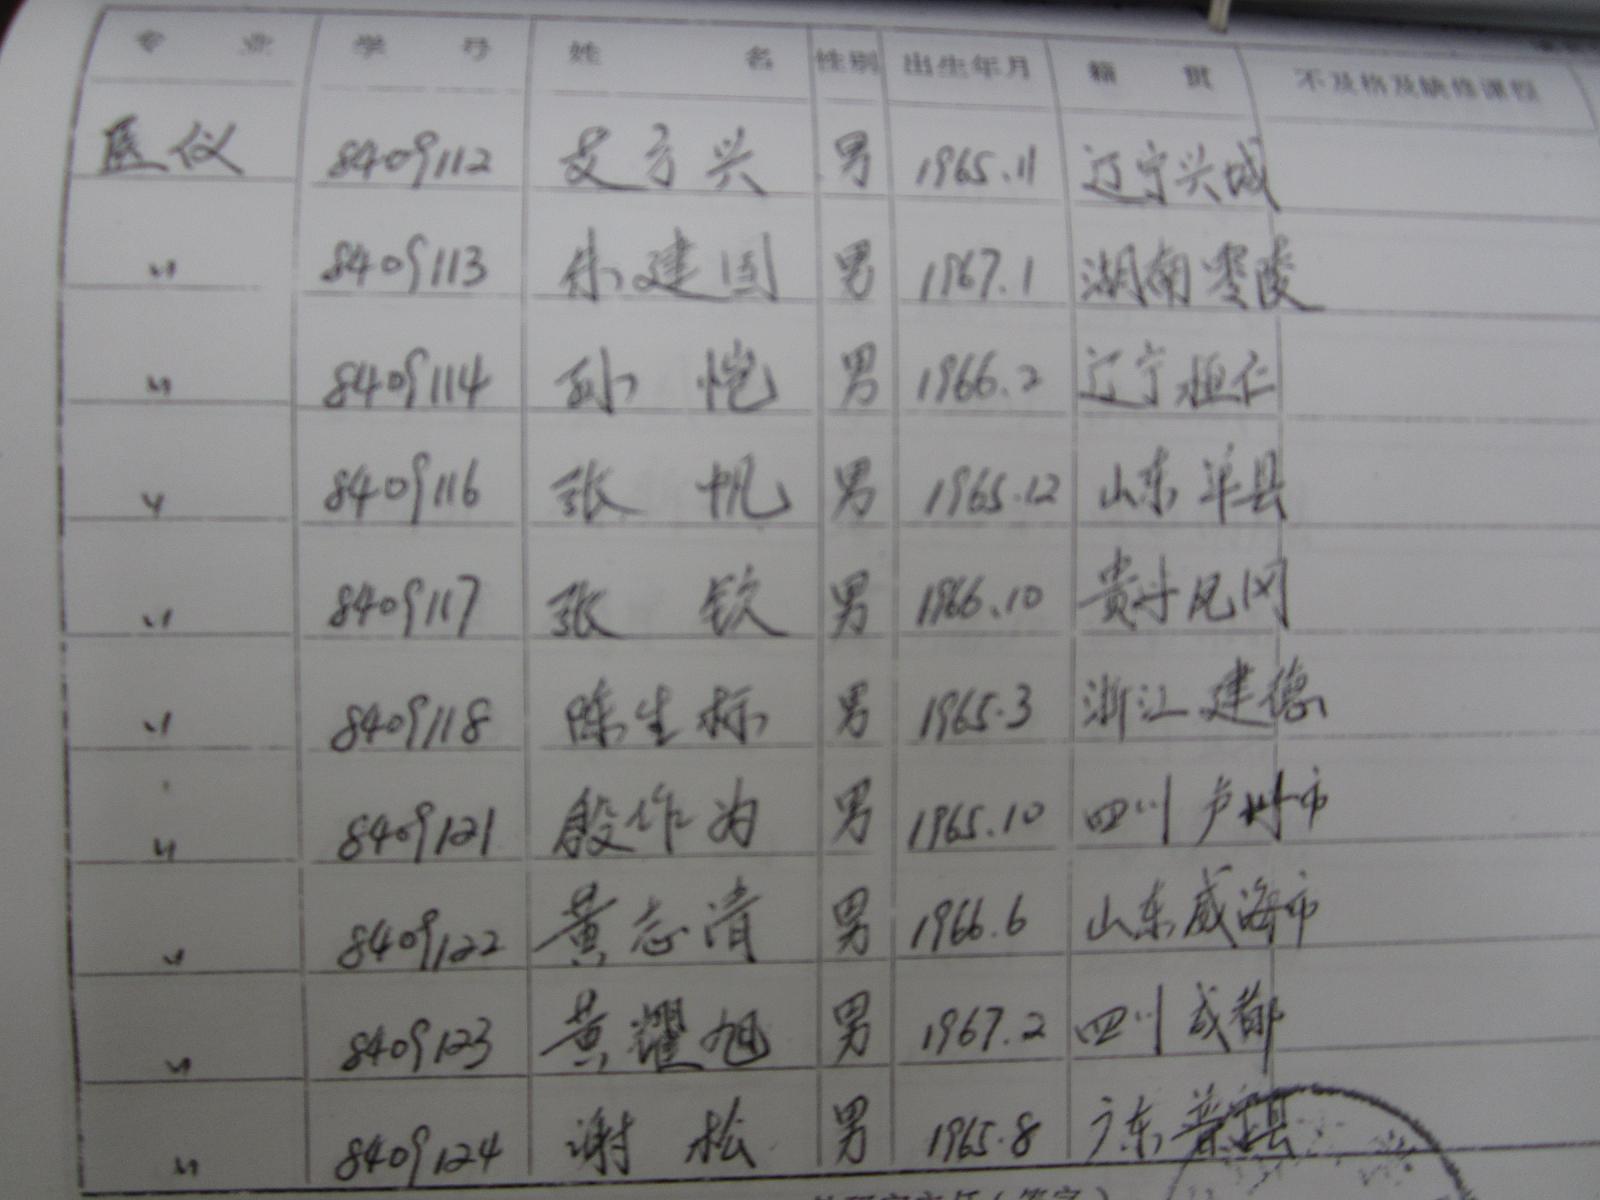 专业 学号 姓名 性别 出生年月 籍贯 不及格及缺修课程
医仪 8409112 艾方兴 男 1965.11 辽宁兴城
〃 8409113 朱建国 男 1967.1 湖南零陵
〃 8409114 孙恺 男 1966.2 辽宁桓仁
〃 8409116 张帆 男 1965.12 山东单县
〃 8409117 张钦 男 1966.10 贵州凤冈
〃 8409118 陈生标 男 1965.3 浙江建德
〃 8409121 殷作为 男 1965.10 四川卢州市
〃 8409122 黄志清 男 1966.6 山东威海市
〃 8409123 黄耀旭 男 1967.2 四川成都
〃 8409124 谢松 男 1965.8 广东普宁县